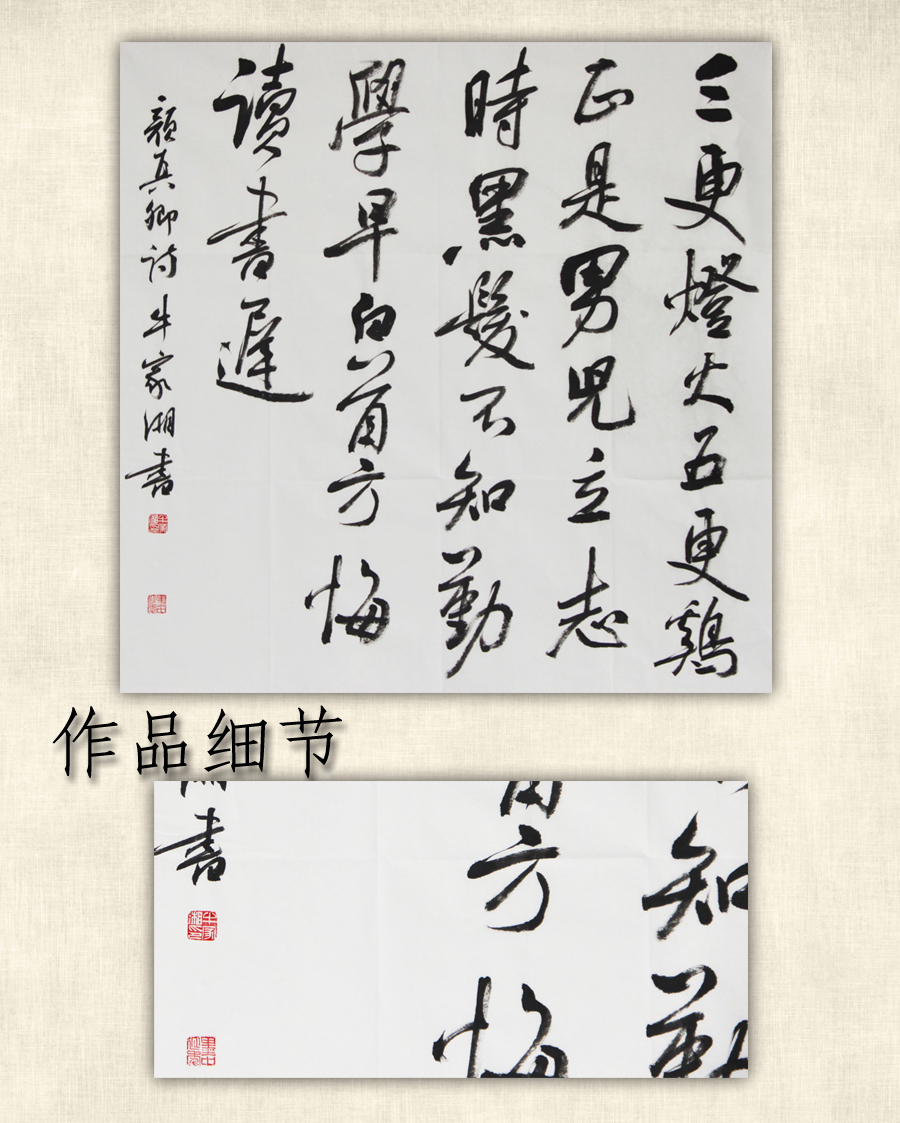 三更燈火五更鷄
正是男兒立志
時黑髮不知勤
學早白首方悔
讀書遲
顔真卿詩牛家湘書
作品细节
知勤
首方悔
書